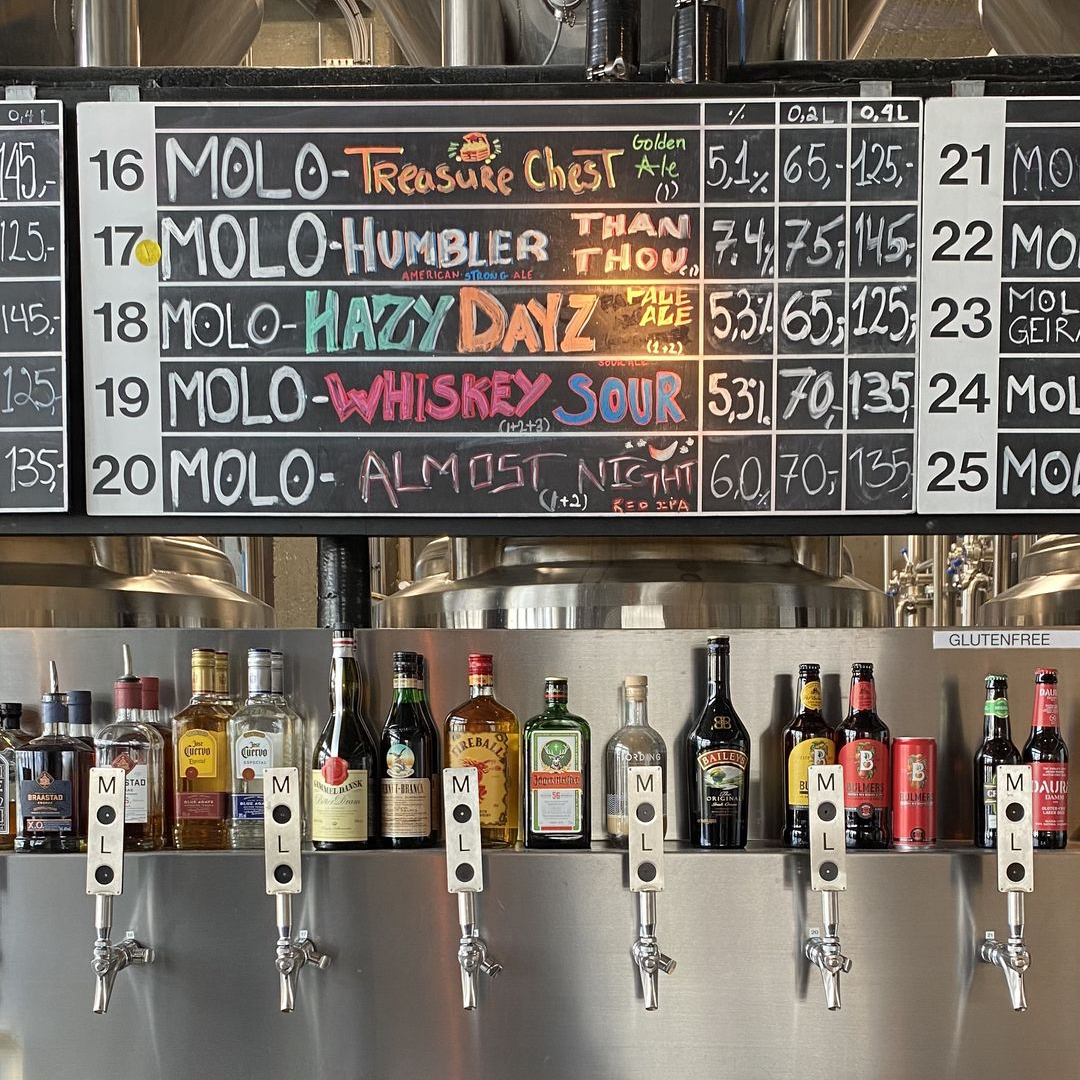 0,4 L
145,-
125,-
145,-
125,-
135,-
% 0,2 L 0,4 L
16 MOLO- Treasure Chest Golden Ale (1) 5,1% 65,- 125,-
17 MOLO- HUMBLER THAN THOU (1) 7.4% 75,- 145,-
AMERICAN STRONG ALE
18 MOLO- HAZY DAYZ PALE ALE (1+2) 5,3% 65,- 125,-
SOUR ALE
19 MOLO- WHISKEY SOUR 5,3% 70,- 135,-
(1+2+3)
20 MOLO- ALMOST NIGHT 6,0% 70,- 135,-
(1+2) RED IPA
21 MO
22 MO
23 MOL
GEIRA
24 MOL
25 MOL
GLUTENFREE
BRAASTAD
X.O.
STAD
Jose Cuervo
Especial
BLUE AGAVE
Jose Cuervo
ESPECIAL
BLUE AGA
GAMMEL DANSK
Bitter Dram
FERNET-BRANCA
FIREBALL
Jägermeister
56
FJORDING
BAILEYS
THE ORIGINAL
BULMERS
BULMERS
DAURA
DAURA
DAMM
MOLO
MOLO
MOLO
MOLO
MOLO
MOLO